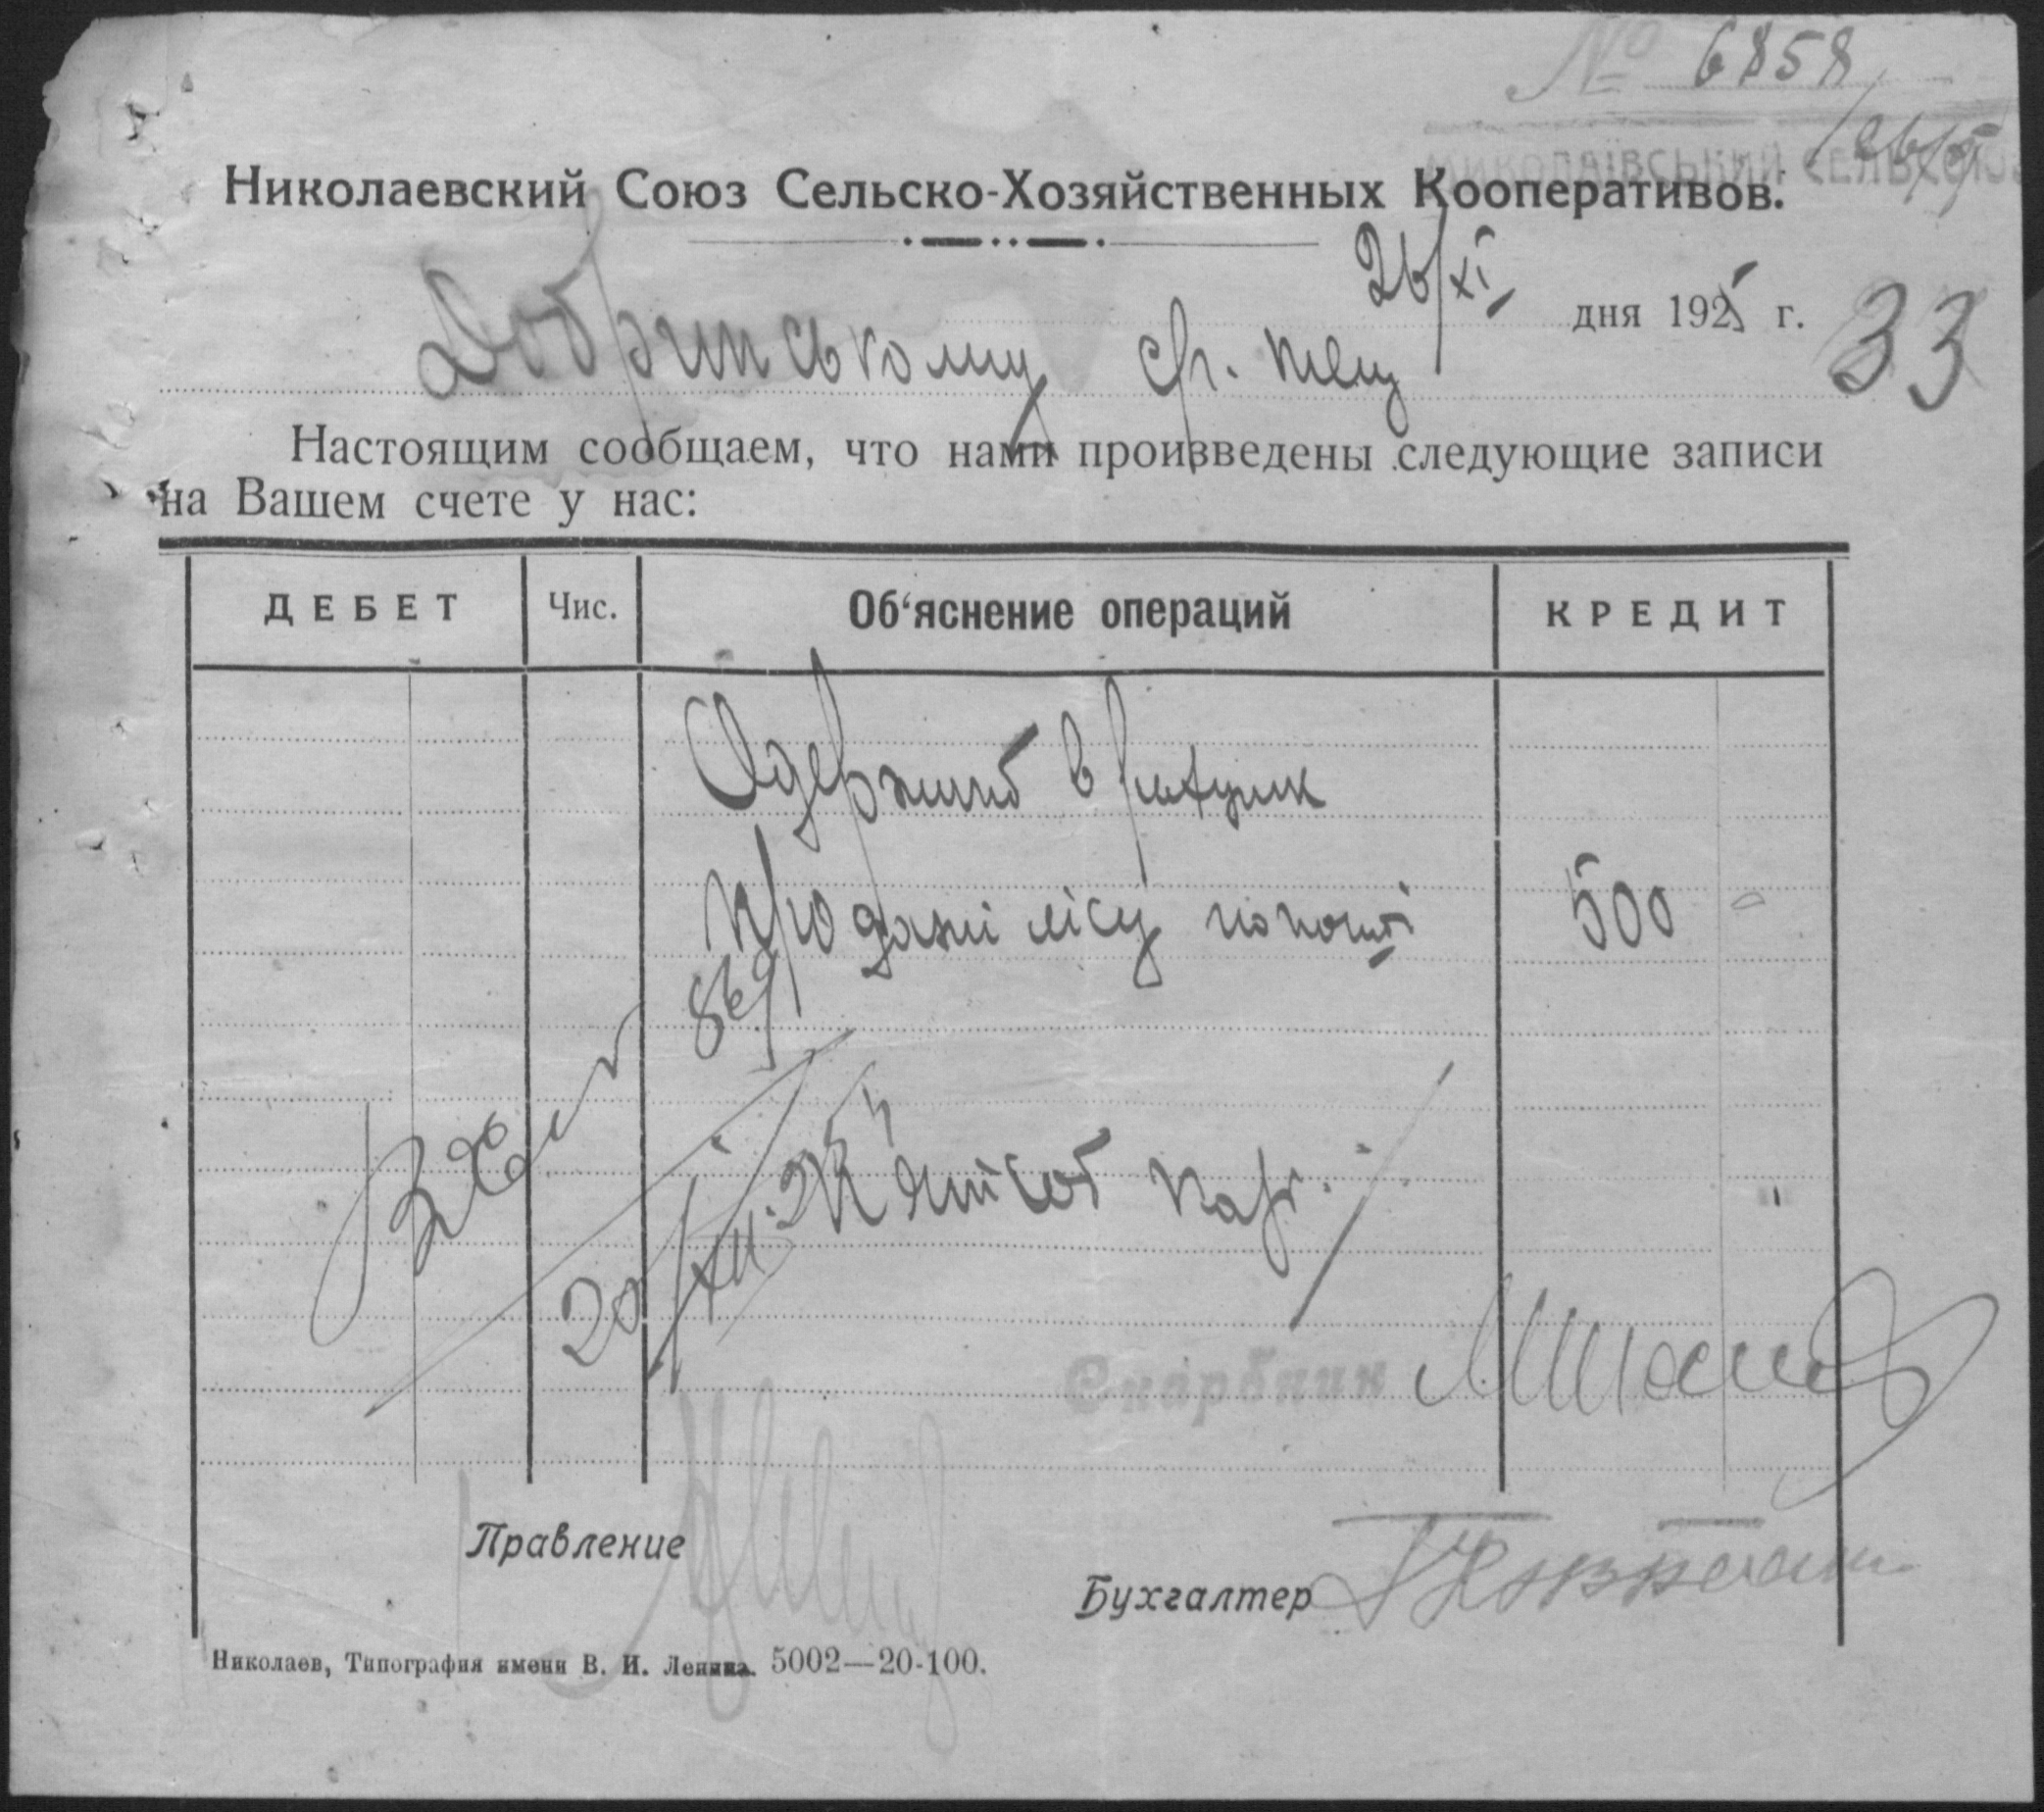 № 6858
МИКОЛАЇВСЬКИЙ СЕЛЬСОЮЗ
26/XI
Николаевский Союз Сельско-Хозяйственных Кооперативов.
26/XI дня 1925 г. 33
Добринському
Настоящим сообщаем, что нами произведены следующие записи
на Вашем счете у нас:
ДЕБЕТ Чис. Об‘яснение операций КРЕДИТ
Одержано в рахунок
продажі лісу по пошті 500 -
869
20/XII
П'ятсот карб.
Скарбник
Правление
Бухгалтер
Николаев, Типография имени В. И. Ленина. 5002—20-100.